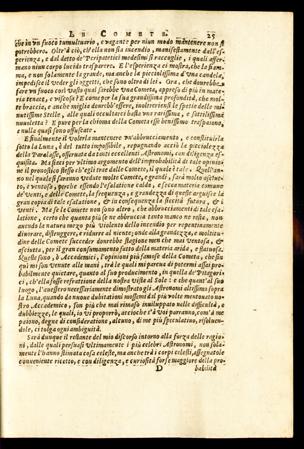 LE COMETE. 25
che in vn fuoco tumultuario, e vegente per niun modo mantenere non si
potrebbero. Oltr'à ciò, ch'ella non sia incendio, manifestamente dall'es-
perienza, e dal detto de' Peripatetici medesimi si raccoglie, i quali affer-
mano niun corpo lucido trasparere. E l'esperienza ci mostra, che la fiam-
ma, e non solamente la grande, ma anche la piccolissima d'vna candela,
impedisce il veder gli oggetti, che sono oltra di lei. Ora, che dourebbe
fare vn fuoco così vasto qual sarebbe vna Cometa, appreso di più in mas-
teria tenace, e viscosa? E come per la sua grandissima profondità, che mol-
te braccia, e anche miglia dourebb'essere,
nutissime Stelle, alle quali occultare basta vna rarissima, e sottilissima
nuuoletta? E pure per la chioma della Cometa esse benissimo traspaiono,
e nulla quasi sono offuscate.
E finalmente il volerla mantenere vn'abbruciamento, e constituirla
sotto la Luna, è del tutto impossibile, repugnando acciò la picciolezza
della Paralasse, osseruata da tanti eccellenti Astronomi, con diligenza es-
quisita. Ma siesi per vltimo argumento dell'improbabilità di tale opinio
ne il pronostico stesso ch'egli trae dalle Comete, il quale è tale. Quell'an-
no nel quale si saranno vedute molte Comete, e grandi, sarà molto asciut-
to, e ventoso, perche essendo l'esalatione calda, e secca materia comune
de' venti, e delle Comete, la frequenza, e grandezza di queste arguisce la
gran copia di tale esalatione, & in conseguenza la siccità futura, & i
venti. Ma se le Comete non sono altro, che abbruciamenti di tale esa-
latione, certo che quanta più se ne abbrucia tanto manco ne resta, non
auendo la natura mezo più violento dell'incendio per repentinamente
diuorare, distruggere, e ridurre al niente; onde alla grandezza, e moltitu-
dine delle Comete succeder dourebbe stagione men che mai ventosa, &
asciutta, per il gran consumamento fatto della materia arida, e flatuosa.
Queste sono, ò Accademici, l'opinioni più famose della Cometa, che sin
qui mi son venute alle mani, trà le quali mi parrea di potermi assai pro-
babilmente quietare, quanto al suo producimento, in quella de' Pitagori-
ci, ch'ella fusse refrattione della nostra Vista al Sole: e che quant'al suo
luogo, l'auesser necessariamente dimostrato gli Astronomi altissimo sopra
la Luna, quando da nuoue dubitationi mossemi dal più volte mentouato no-
stro Accademico, son più che mai rimaso inuiluppato nelle difficultà, e
dubbiezze, le quali, io vi proporrò, acciocche s'à voi parranno, com'à me
paiono, degne di consideratione, alcuno, di me più speculatiuo, risoluen-
dole, ci tolga ogni ambiguità.
Sarà dunque il restante del mio discorso intorno alla forza delle ragio-
ni, dalle quali persuasi vltimamente i più celebri Astronomi, non sola-
mente l'anno stimata cosa celeste, ma anche trà i corpi celesti, assegnatole
conueniente ricetto, e con diligenza, e curiosità forse maggiore della pro-
D babilità